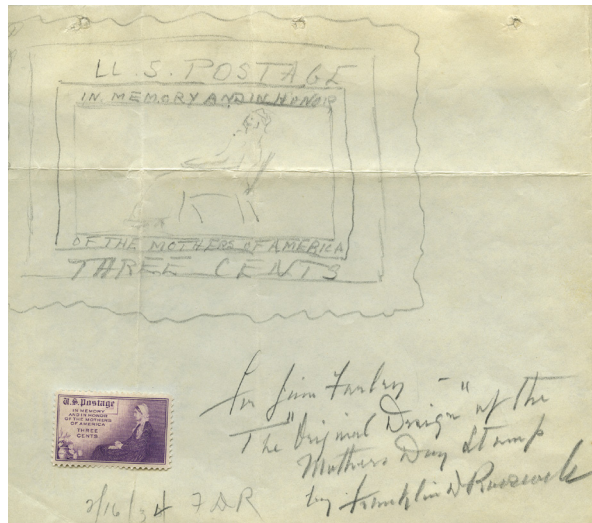 U. S. POSTAGE
IN MEMORY AND IN HONOR
OF THE MOTHERS OF AMERICA
THREE CENTS
U.S. Postage
IN MEMORY
AND IN HONOR
OF THE MOTHERS
OF AMERICA
THREE
CENTS
For Jim Farley -
The "Original Design" of the
Mothers Day Stamp
by Franklin D Roosevelt
2/16/34 FDR